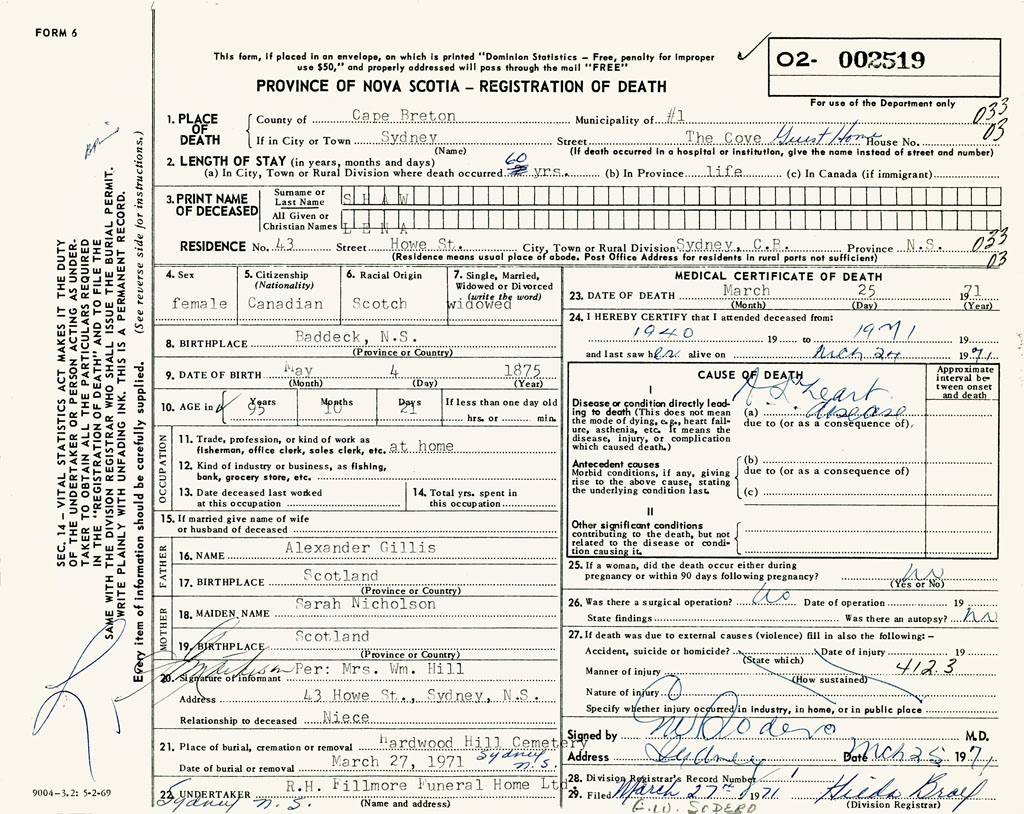 FORM 6
This form, if placed in an envelope, on which is printed "Dominion Statistics – Free, penalty for improper
use $50," and properly addressed will pass through the mail "FREE"
O2- 002519
For use of the Department only
PROVINCE OF NOVA SCOTIA – REGISTRATION OF DEATH
1. PLACE OF DEATH
County of Cape Breton Municipality of #1 033
If in City or Town Sydney Street The Cove Guest Home House No. 03
(Name) (If death occurred in a hospital or institution, give the name instead of street and number)
2. LENGTH OF STAY (in years, months and days)
(a) In City, Town or Rural Division where death occurred 60 yrs. (b) In Province life (c) In Canada (if immigrant)
3. PRINT NAME OF DECEASED
Surname or Last Name SHAW
All Given or Christian Names LENA
RESIDENCE No. 43 Street Howe St. City, Town or Rural Division Sydney, C.B. Province N.S. 033
(Residence means usual place of abode. Post Office Address for residents in rural parts not sufficient) 03
4. Sex
female
5. Citizenship
(Nationality)
Canadian
6. Racial Origin
Scotch
7. Single, Married,
Widowed or Divorced
(write the word)
widowed
8. BIRTHPLACE Baddeck, N.S.
(Province or Country)
9. DATE OF BIRTH May 4 1875
(Month) (Day) (Year)
10. AGE in Years Months Days If less than one day old
95 10 21 hrs. or min.
OCCUPATION
11. Trade, profession, or kind of work as
fisherman, office clerk, sales clerk, etc. at home
12. Kind of industry or business, as fishing,
bank, grocery store, etc.
13. Date deceased last worked
at this occupation
14. Total yrs. spent in
this occupation
15. If married give name of wife
or husband of deceased
FATHER
16. NAME Alexander Gillis
17. BIRTHPLACE Scotland
(Province or Country)
MOTHER
18. MAIDEN NAME Sarah Nicholson
19. BIRTHPLACE Scotland
(Province or Country)
20. Signature of informant Per: Mrs. Wm. Hill
Address 43 Howe St., Sydney, N.S.
Relationship to deceased Niece
21. Place of burial, cremation or removal Hardwood Hill Cemetery
Sydney N.S.
Date of burial or removal March 27, 1971
22. UNDERTAKER R.H. Fillmore Funeral Home Ltd.
Sydney N.S. (Name and address)
MEDICAL CERTIFICATE OF DEATH
23. DATE OF DEATH March 25 1971
(Month) (Day) (Year)
24. I HEREBY CERTIFY that I attended deceased from:
1940 19 to 1971 19
and last saw her alive on Mch 24 1971
CAUSE OF DEATH
Approximate
interval be-
tween onset
and death
I
Disease or condition directly lead-
ing to death (This does not mean
the mode of dying, e.g., heart fail-
ure, asthenia, etc. It means the
disease, injury, or complication
which caused death.)
(a) A S heart disease
due to (or as a consequence of)
Antecedent causes
Morbid conditions, if any, giving
rise to the above cause, stating
the underlying condition last.
(b)
due to (or as a consequence of)
(c)
II
Other significant conditions
contributing to the death, but not
related to the disease or condi-
tion causing it.
25. If a woman, did the death occur either during
pregnancy or within 90 days following pregnancy? no
(Yes or No)
26. Was there a surgical operation? no Date of operation 19
State findings Was there an autopsy? no
27. If death was due to external causes (violence) fill in also the following:–
Accident, suicide or homicide? Date of injury 19
(State which)
Manner of injury 4123
(How sustained)
Nature of injury
Specify whether injury occurred in industry, in home, or in public place
Signed by M.D.
Address Sydney Date Mch 25 1971
28. Division Registrar's Record Number
29. Filed March 27th 1971
(Division Registrar)
E.W. SODERO
SEC. 14 – VITAL STATISTICS ACT MAKES IT THE DUTY
OF THE UNDERTAKER OR PERSON ACTING AS UNDER-
TAKER TO OBTAIN ALL THE PARTICULARS REQUIRED
IN THE "REGISTRATION OF DEATH" AND TO FILE THE
SAME WITH THE DIVISION REGISTRAR WHO SHALL ISSUE THE BURIAL PERMIT.
WRITE PLAINLY WITH UNFADING INK. THIS IS A PERMANENT RECORD.
Every item of information should be carefully supplied. (See reverse side for instructions.)
9004–3.2: 5-2-69